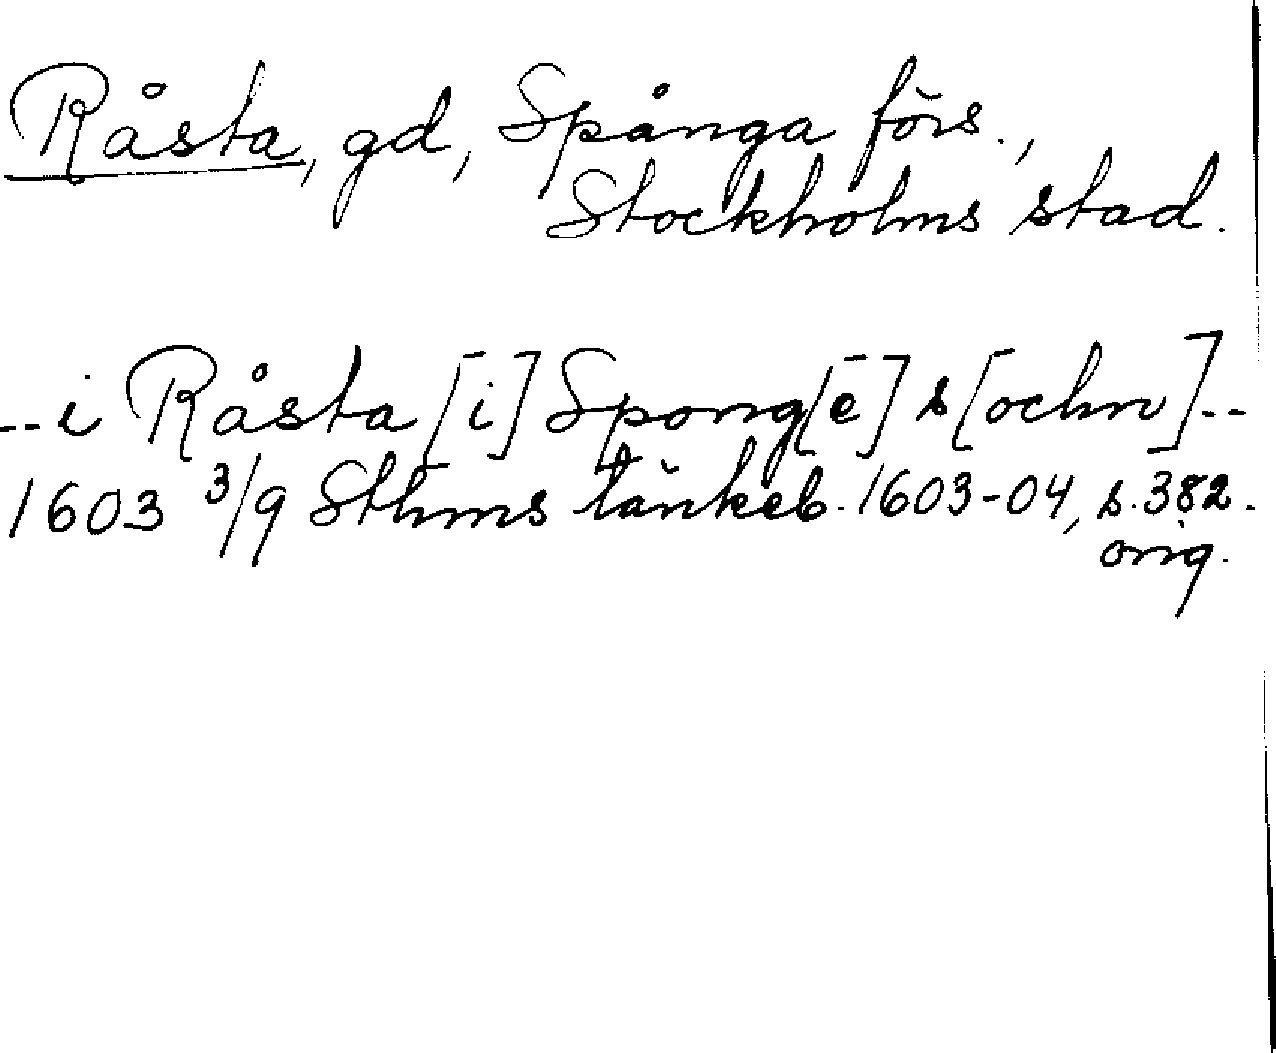 Råsta, gd, Spånga förs.,
Stockholms stad.
--i Råsta [i] Spong[e] s[ochn]--
1603 3/9 Sthms tänkeb. 1603-04, s. 382.
orig.